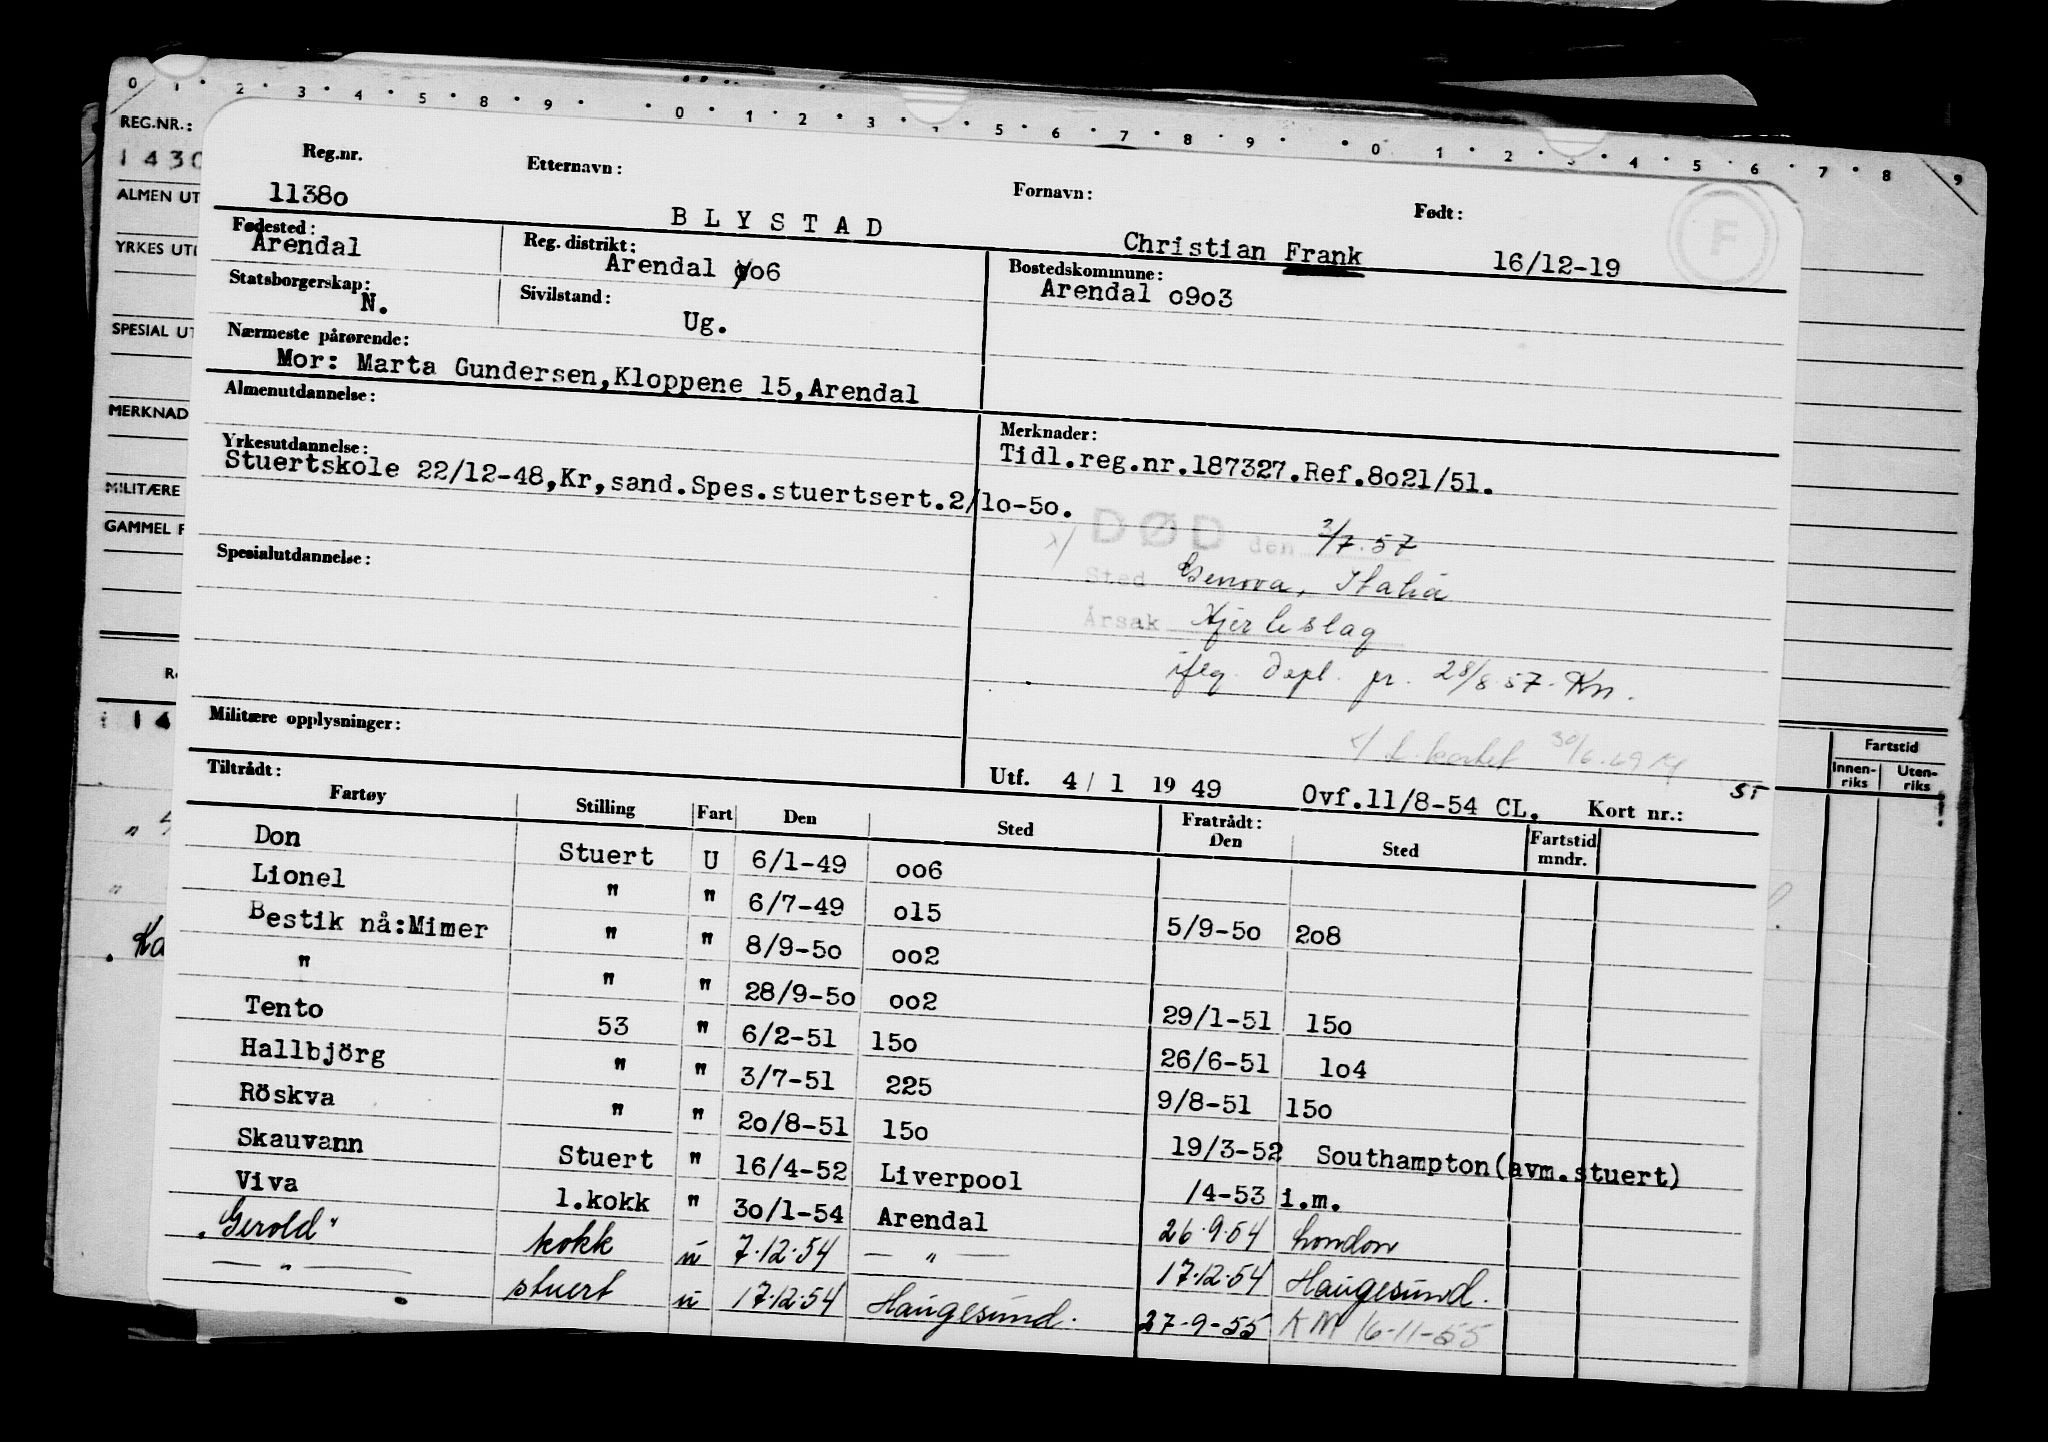 0 1 2 3 4 5 8 9 0 1 2 3 5 6 7 8 9 0 1 2 3 4 5 6 7 8 9
REG.NR.:
1430
ALMEN UT
YRKES UT
SPESIAL UT
MERKNAD
MILITÆRE
GAMMEL F
Reg.nr. Etternavn: Fornavn: Født:
1138o BLYSTAD Christian Frank 16/12-19
F
Fødested: Reg. distrikt: Bostedskommune:
Arendal Arendal oo6 Arendal o9o3
Statsborgerskap: Sivilstand:
N. Ug.
Nærmeste pårørende:
Mor: Marta Gundersen,Kloppene 15,Arendal
Almenutdannelse: Merknader:
Tidl.reg.nr.187327.Ref.8o21/51.
Yrkesutdannelse:
Stuertskole 22/12-48,Kr,sand.Spes.stuertsert.2/1o-5o.
x/ DØD den 2/7.57
Sted Genova, Italia
Årsak Hjerteslag
iflg. depl. pr. 28/8 57. Kn.
Spesialutdannelse:
Militære opplysninger:
30/6.69
Utf. 4/1 1949 Ovf.11/8-54 CL. Kort nr.: 5T
Tiltrådt: Fratrådt:
Fartøy Stilling Fart Den Sted Den Sted Fartstid mndr.
Don Stuert U 6/1-49 oo6
Lionel " " 6/7-49 o15 5/9-5o 2o8
Bestik nå:Mimer " " 8/9-5o oo2
" " " 28/9-5o oo2 29/1-51 15o
Tento 53 " 6/2-51 15o 26/6-51 1o4
Hallbjörg " " 3/7-51 225 9/8-51 15o
Röskva " " 2o/8-51 15o 19/3-52 Southampton(avm.stuert)
Skauvann Stuert " 16/4-52 Liverpool /4-53 i.m.
Viva 1.kokk " 3o/1-54 Arendal 26.9.54 London
"Gerold" kokk u 7.12.54 — " — 17.12.54 Haugesund.
— " — stuert u 17.12.54 Haugesund. 27-9-55 KM 16-11-55
Fartstid
Innen-riks Uten-riks